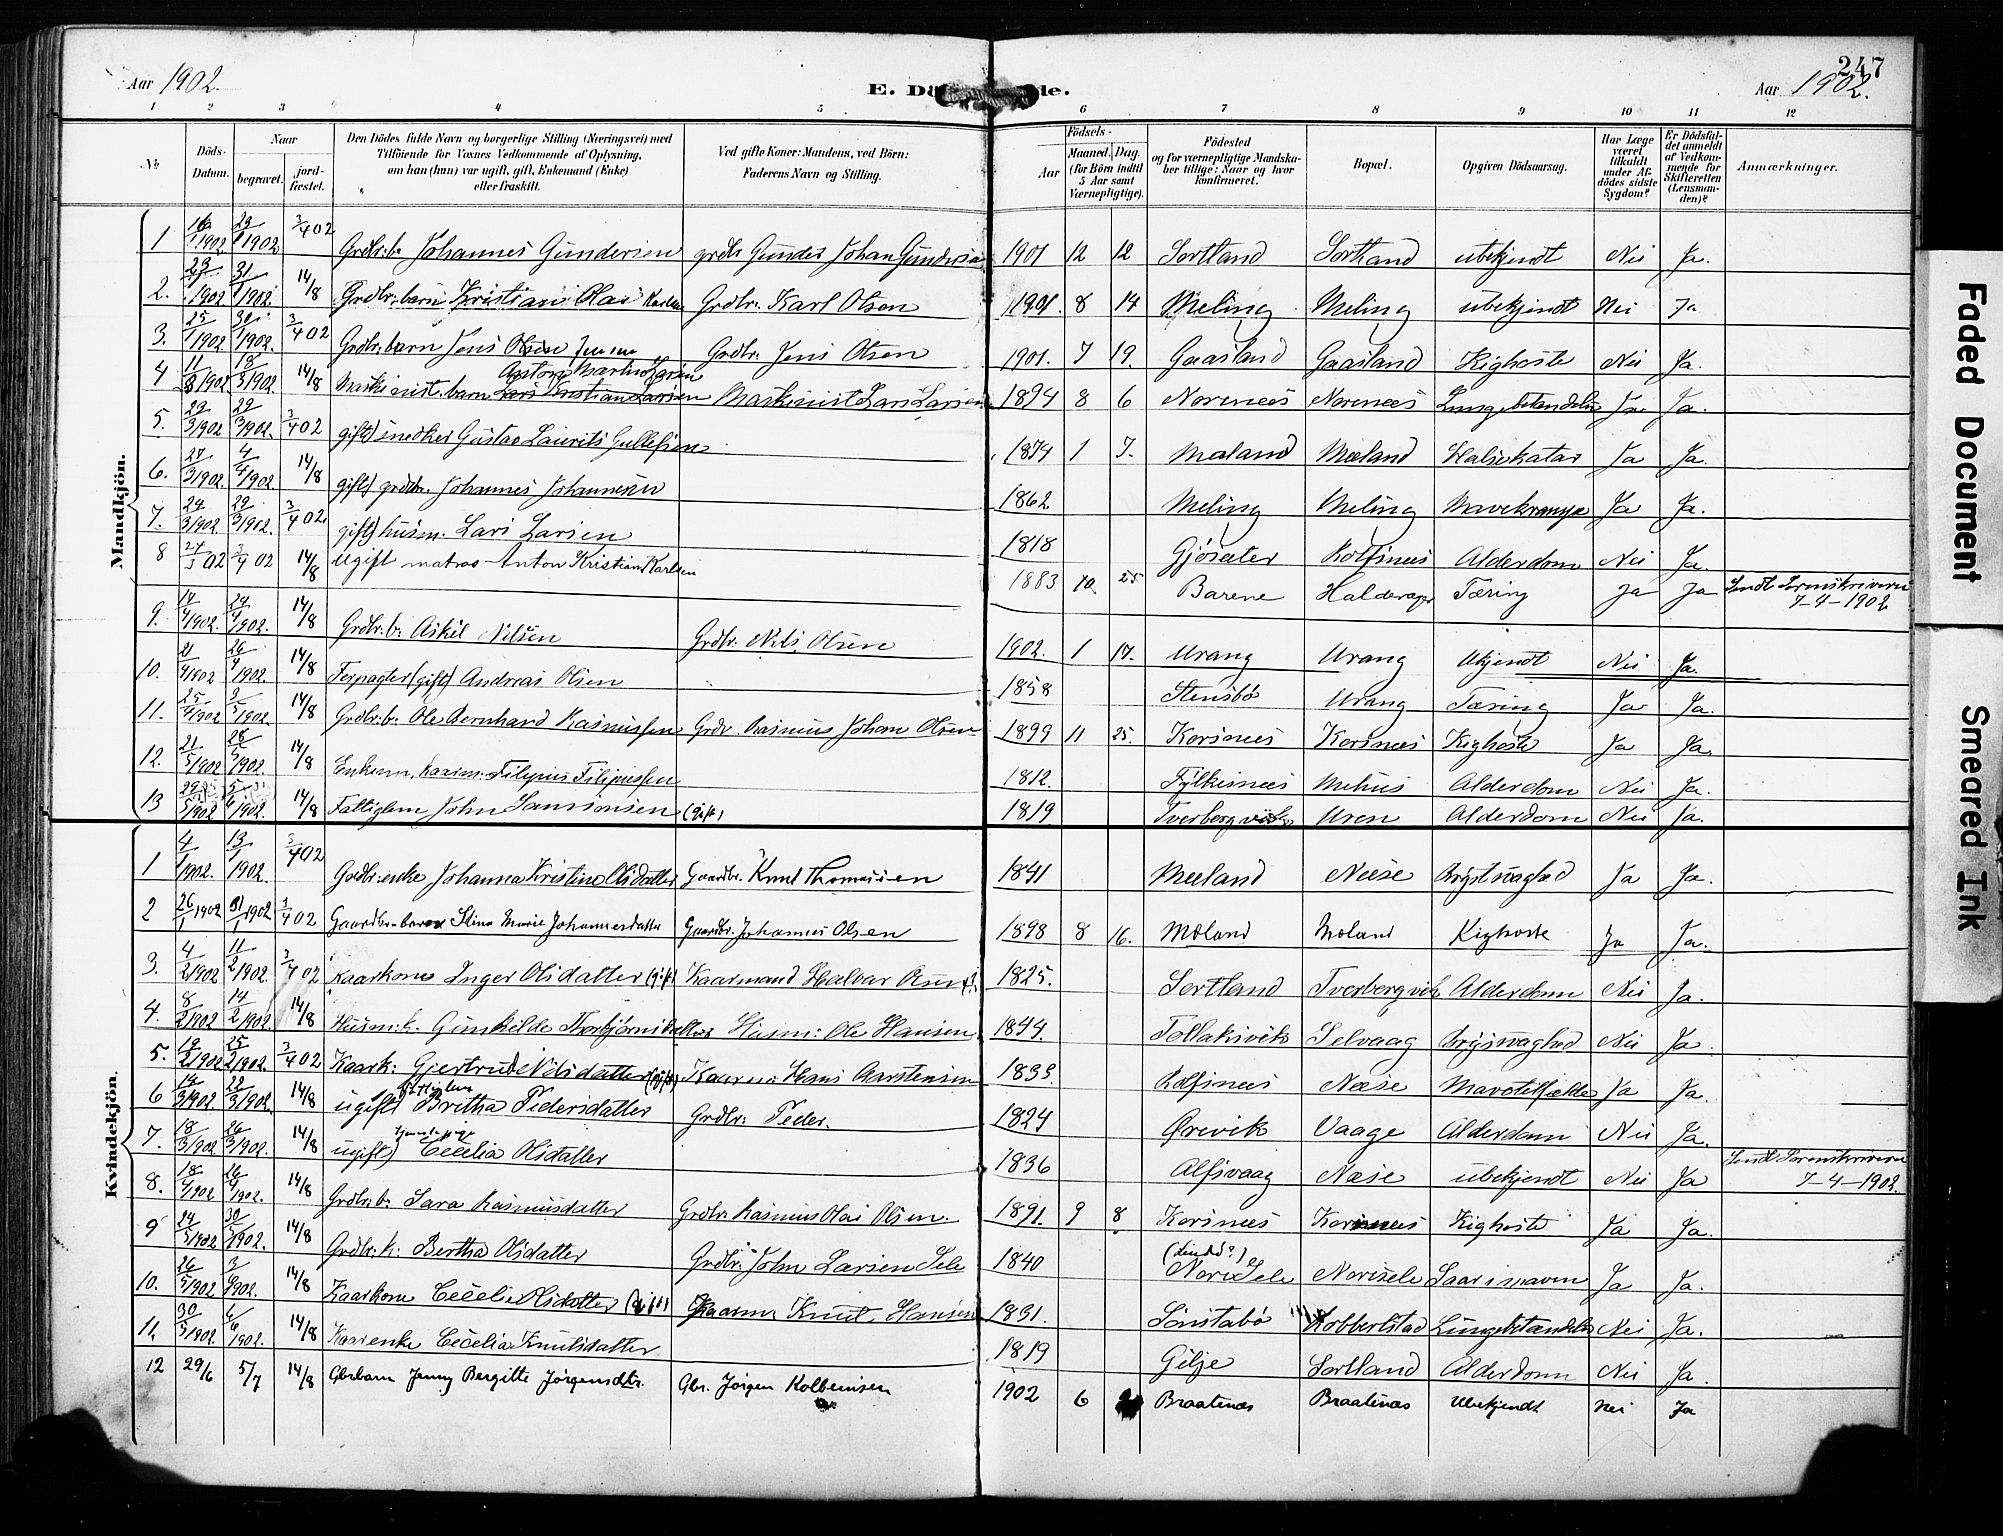 Aar 1902.
E. Dö de.
247
Aar 1902.
1 2 3 4 5 6 7 8 9 10 11 12
No
Döds-Datum.
Naar
begravet.
jord-fæstet.
Den Dödes fulde Navn og borgerlige Stilling (Næringsvei) med
Tilföiende for Voxnes Vedkommende af Oplysning,
om han (hun) var ugift, gift, Enkemand (Enke)
eller fraskilt.
Ved gifte Koner: Mandens, ved Börn:
Faderens Navn og Stilling.
Födsels-
Aar
Maaned. Dag.
(for Börn indtil
5 Aar samt
Værnepligtige).
Födested
og for værnepligtige Mandska-
ber tillige: Naar og hvor
konfirmeret.
Bopæl.
Opgiven Dödsaarsag.
Har Læge
været
tilkaldt
under Af-
dödes sidste
Sygdom?
Er Dödsfal-
det anmeldt
af Vedkom-
mende for
Skifteretten
(Lensman-
den)?
Anmærkninger.
Mandkjön.
1 16/1 1902 29/1 1902 3/4 02 Grdbr: b. Johannes Gundersen grdbr Gunder Johan Gundersen 1901 12 12 Sortland Sortland ubekjendt Nei Ja.
2. 1902 31/1 1902. 14/8 Grdbr: barn Kristian Olai Karlsen Grdbr: Karl Olsen 1901. 8 14 Meling Meling ubekjendt Nei Ja
3. 25/1 1902 30/1 1902. 3/4 02 Grdbr: barn Jens Jensen Grdbr: Jens Olsen 1901. 7 19. Gaasland Gaasland Kighoste Nei Ja.
4 11/3 1902 18/3 1902. 14/8 Maskinist. barn Lars Kristian Larsen Maskinist Lars Larsen 1894 8 6 Norenæs Norenæs Lungebetændelse Ja Ja.
5. 29/3 1902. 3/4 02 gift) snedker Gustav Laurits Gullefsen 1874 1 7. Mæland Mæland Halsekatar Ja Ja.
6. 27/3 1902. 4/4 1902. 14/8 gift) grdbr. Johannes Johannesen 1862 Meling Meling Mavekrampe Ja Ja.
7. 24/3 1902. 29/3 1902. 3/4 02 gift) husm. Lars Larsen 1818 Gjøsæter Rolfsnæs Alderdom Nei Ja.
8 27/3 02 3/4 02 14/8 Ugift matros Anton Kristian Karlsen 1883 10 25 Barene Halderager Tæring Ja Ja Sendt Sorenskriveren
7-4-1902
9. 14/4 1902. 24/4 1902. 14/8 Grdbr: b: Askil Nilsen Grdbr: Nils Olsen 1902. 1 17. Urang Urang Ukjendt Nei Ja.
10. 21/4 1902 26/4 1902. 14/8 Forpagter (gift) Andreas Olsen 1858 Stensbø Urang Tæring Ja Ja.
11. 25/4 1902 3/5 1902. 14/8 Grdbr: b: Ole Bernhard Rasmussen Grdr. Rasmus Johan Olsen 1899 11 25. Korsnæs Korsnæs Kighoste Ja Ja.
12. 21/5 1902 28/5 1902. 14/8 Enkem. Kaarm: Filipus Filipussen 1812. Fylkesnæs Mehus Alderdom Nei Ja.
13 29/5 1902 5/6 1902. 14/8 Fattiglem John Samsonsen (gift) 1819 Tverbergvik Uren Alderdom Nei Ja.
Kvindekjön.
1 4/1 1902. 13/1 1902. 3/4 02 Grdbr: enke Johanna Kristine Olsdatter Gaardbr. Knut Thomassen 1841 Mæland Næse Brystsvaghed Ja Ja.
2 26/1 1902 31/1 1902 3/4 02 Gaardbr. barn Stina Marie Johannesdatter Gaardbr. Johannes Olsen 1898 8 16. Mæland Mæland Kighoste Ja Ja.
3. 4/2 1902 11/2 1902. 3/4 02 Kaarkone Inger Olsdatter (gift) Kaarmand Halvar 1825. Sortland Tverbergvik Alderdom Nei Ja.
4. 8/2 1902 14/2 1902. 14/8 Husm: k. Gunhilde Thorbjørnsdatter Husm: Ole Hansen 1844. Tollaksvik Selvaag Brystsvaghed Nei Ja
5. 19/2 1902 25/2 1902. 3/4 02 Kaark: Gjertrud Nilsdatter (gift) Kaarm: Hans Karstensen 1833 Rolfsnæs Næse Mavetilfælde Ja Ja.
6 14/3 1902. 22/3 1902. 14/8 ugift) fattiglem Britha Pedersdatter Grdbr: Peder. 1824 Ørevik Vaage Alderdom Nei Ja.
7. 18/3 1902. 26/3 1902. 14/8 ugift) tjenestepige Cecelia Olsdatter 1836 Alfsvaag Næse ubekjendt Nei Ja Sendt Sorenskriveren
7-4-1902.
8. 18/4 1902 26/4 1902. 14/8 Grdbr: b: Sara Rasmusdatter Grdbr: Rasmus Olai Olsen. 1891. 9 8 Korsnæs Korsnæs Kighoste Ja Ja.
9 24/5 1902 30/5 1902. 14/8 Grdbr: k: Bertha Olsdatter Grdbr: John Larsen Sele 1840 Norisele Saar i maven Ja Ja.
10. 26/5 1902 3/6 1902. 14/8 Kaarkone Cecelie Olsdatter (gift) Kaarm Knut Hansen 1831. Sønstabø Kobbertstad Lungebetændelse Nei Ja.
11. 30/5 1902. 6/6 1902. 14/8 Kaarenke Cecelia Knutsdatter 1819 Gilje Sortland Alderdom Nei Ja.
12 29/6 5/7 14/8 Gbr.barn Jenny Bergitte Jørgensdtr. Gbr. Jørgen Kolbensen 1902 6 Braatenæs Braatenæs Ubekjendt Nei Ja
Faded Document
Smeared Ink